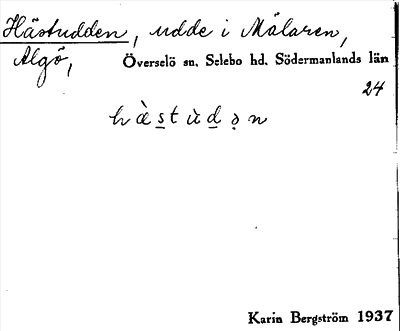 Hästudden, udde i Mälaren,
Algö, Överselö sn. Selebo hd. Södermanlands län
24
hä̀s̲tùd̲ə̣n
Karin Bergström 1937